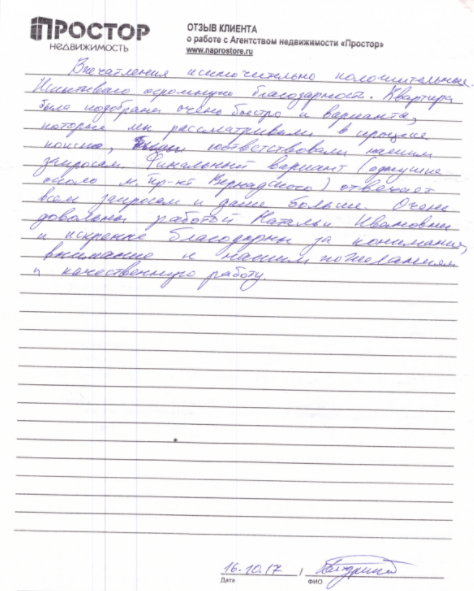 ПРОСТОР
НЕДВИЖИМОСТЬ
ОТЗЫВ КЛИЕНТА
о работе с Агентством недвижимости «Простор»
www.naprostore.ru
Впечатления исключительно положительные.
Испытываю огромную благодарность. Квартира
была подобрана очень быстро и варианта,
которые мы рассматривали в процессе
поиска, соответствовали нашим
запросам. Финальный вариант (
около м. Пр-кт Вернадского) отвечает
всем запросам и даже больше. Очень
довольны работой Натальи Ивановны
и искренне благодарны за понимание,
внимание к нашим пожеланиям
и качественную работу.
16.10.17 /
Дата ФИО